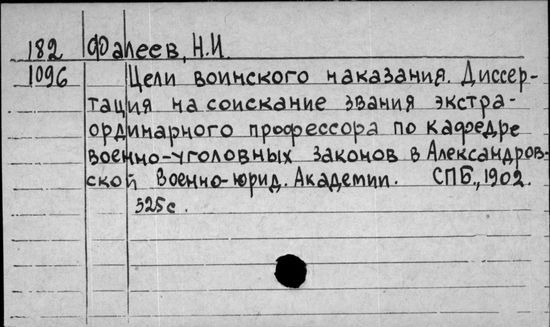 182 Фалеев, Н.И.
1096 Цели воинского наказания. Диссер-
тация на соискание звания экстра-
ординарного профессора по кафедре
военно-уголовных законов в Александров-
ской Военно-юрид. Академии. СПБ., 1902.
525с.